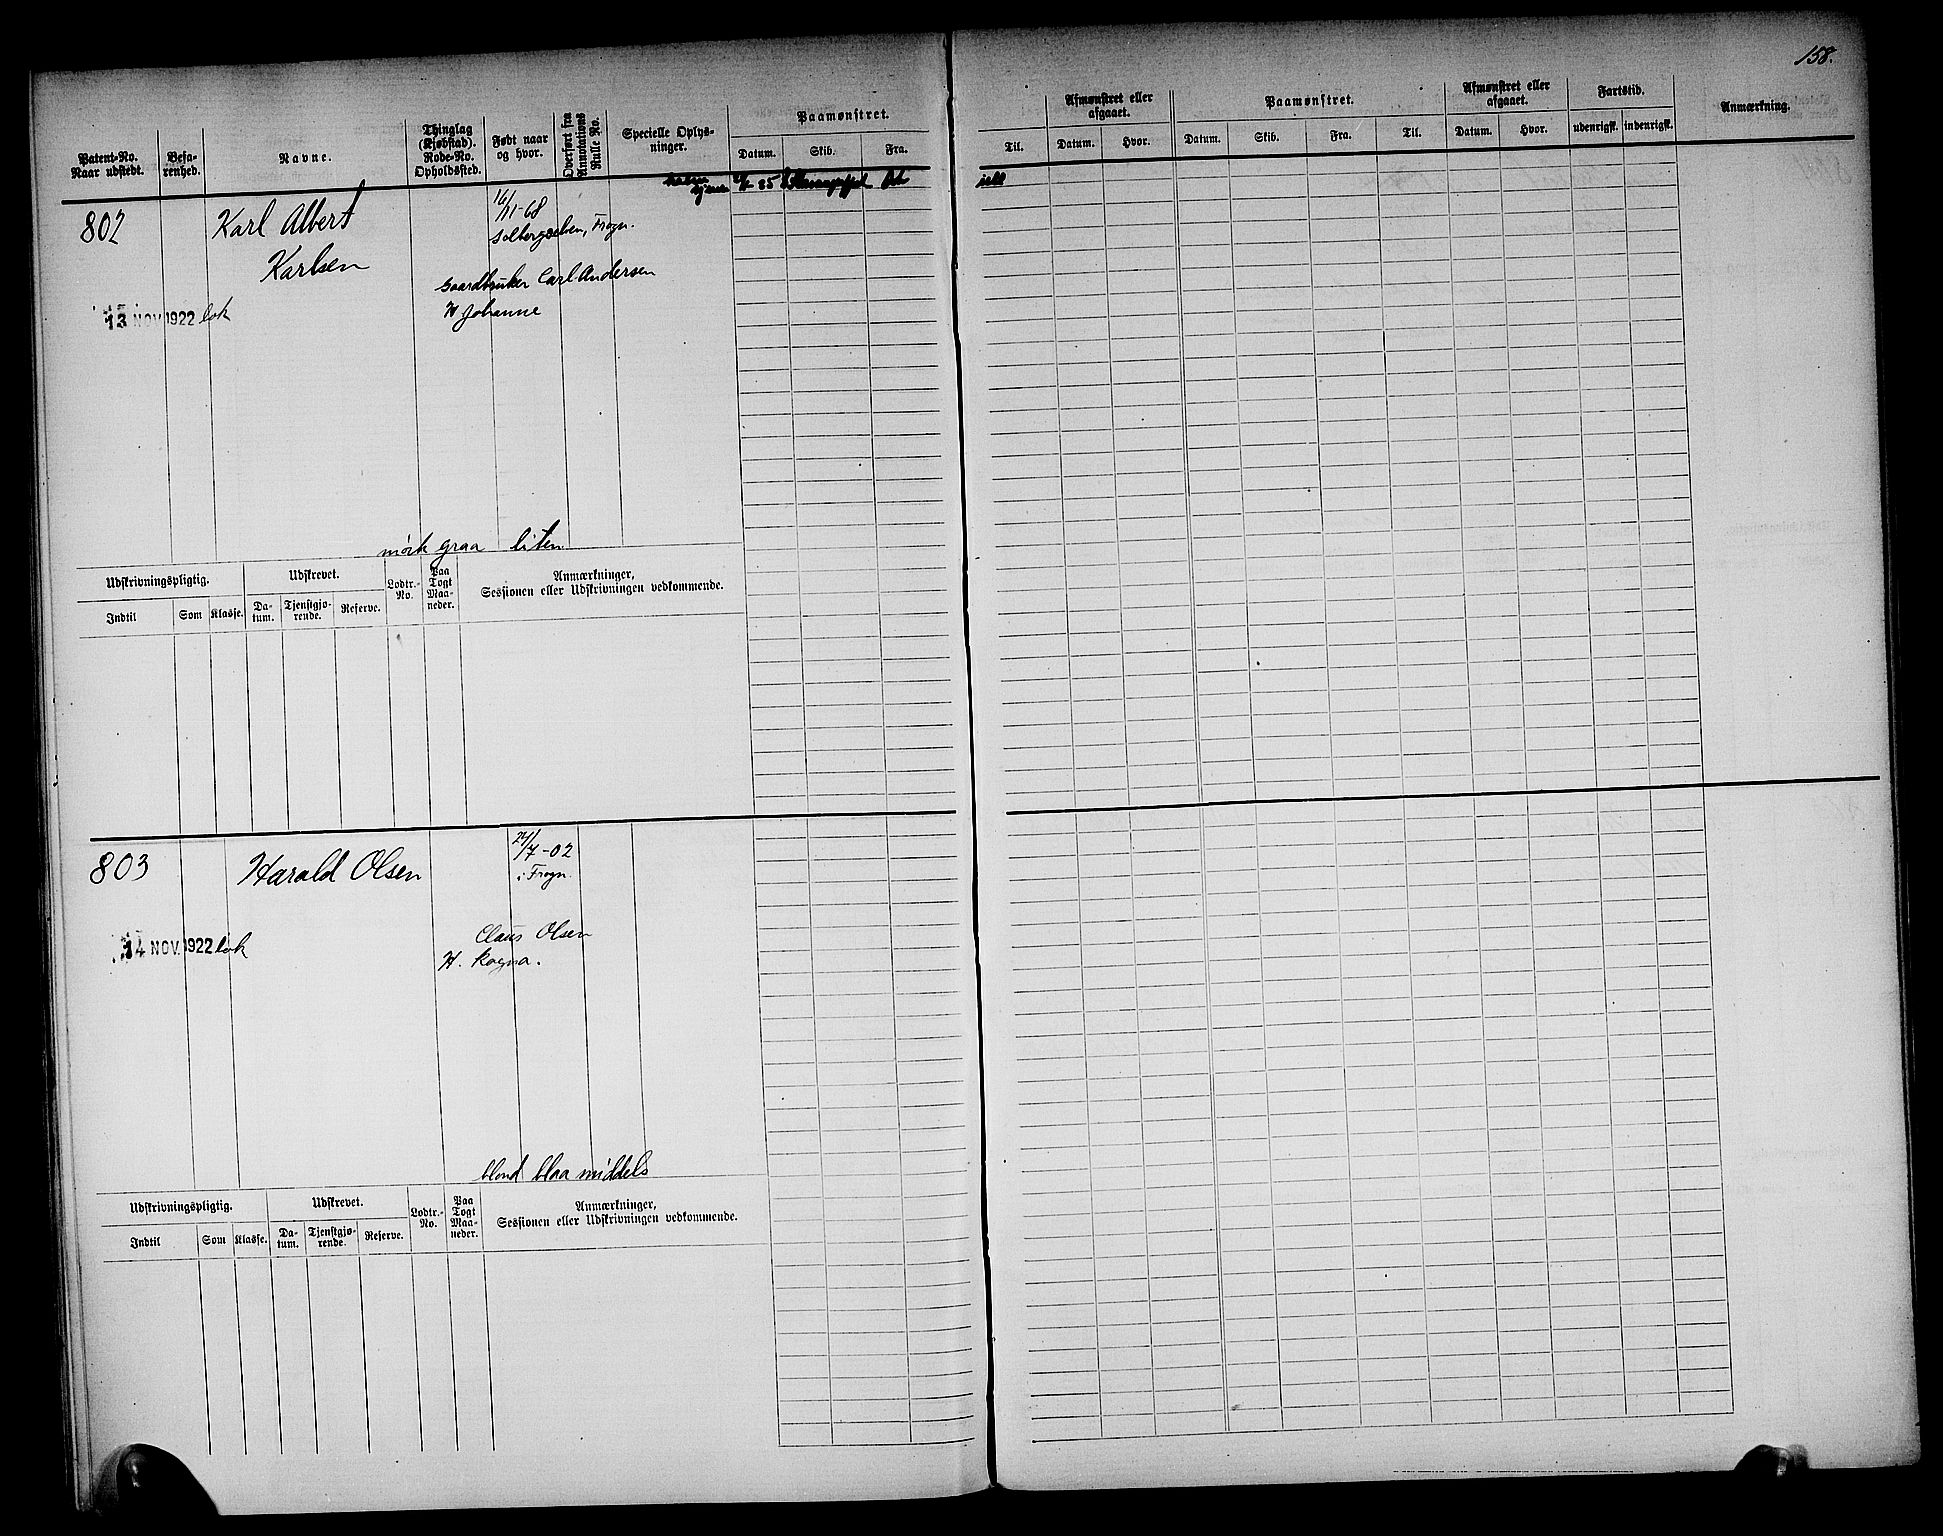 158.
Patent-No. Naar udstedt.
Befarenhed.
Navne.
Thinglag (Kjøbstad). Rode-No. Opholdssted.
Født naar og hvor.
Overført fra Annotations Rulle No.
Specielle Oplysninger.
Paamønstret.
Datum. Skib. Fra.
Til.
Afmønstret eller afgaaet.
Datum. Hvor.
Paamønstret.
Datum. Skib. Fra. Til.
Afmønstret eller afgaaet.
Datum. Hvor.
Fartstid.
udenrigsk. indenrigsk.
Anmærkning.
802
Karl Albert
Karlsen
16/11-68
Solbergselven, Frogn.
Gaardbruker Carl Andersen
H Johanne
13 NOV 1922 lok
mørk graa liten
Udskrivningspligtig.
Indtil Som Klasse.
Udskrevet.
Datum. Tjenstgjørende. Reserve.
Lodtr.-No.
Paa Togt Maaneder.
Anmærkninger,
Sessionen eller Udskrivningen vedkommende.
803
Harald Olsen
24/7-02
i Frogn.
Claus Olsen
H. Ragna.
14 NOV. 1922 lok
blond blaa middels
Udskrivningspligtig.
Indtil Som Klasse.
Udskrevet.
Datum. Tjenstgjørende. Reserve.
Lodtr.-No.
Paa Togt Maaneder.
Anmærkninger,
Sessionen eller Udskrivningen vedkommende.